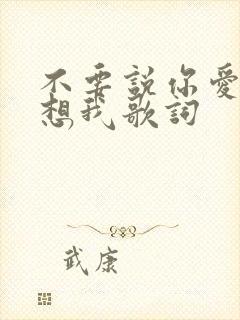 不要說你愛
想我歌詞
武康